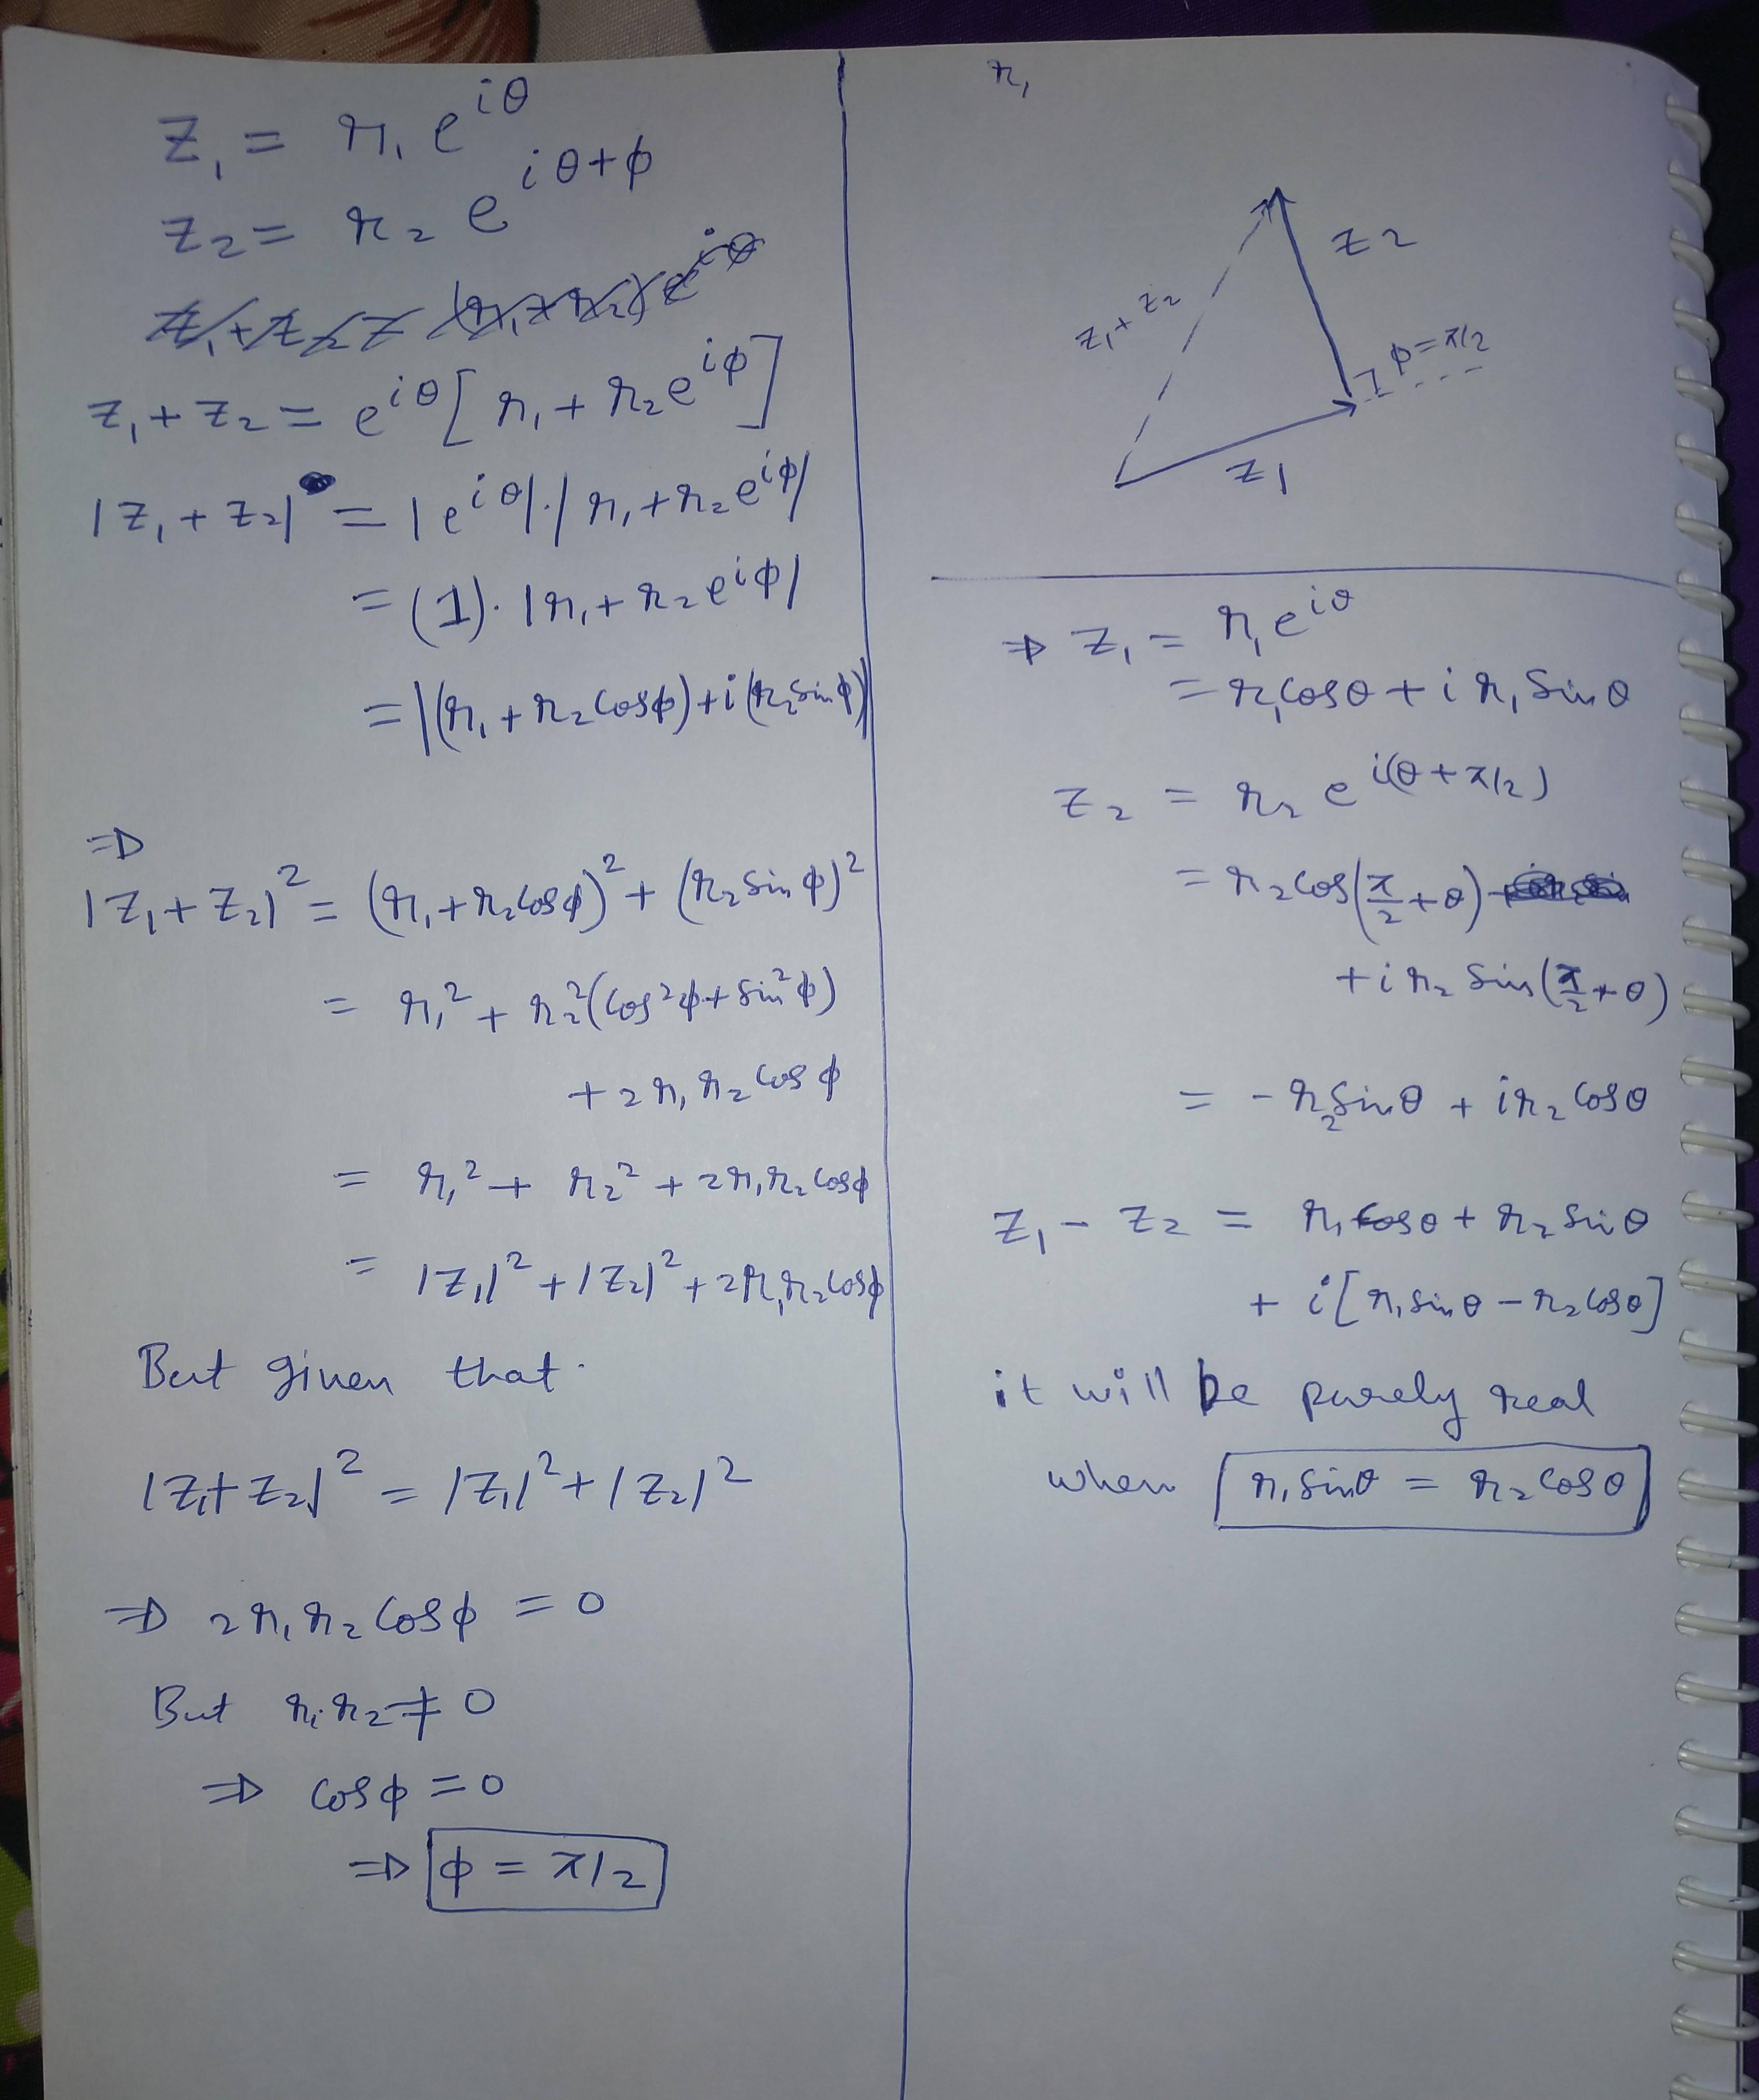 z₁ = r₁ e^{iθ}
z₂ = r₂ e^{iθ+ϕ}
z₁ + z₂ = e^{iθ} [ r₁ + r₂ e^{iϕ} ]
|z₁ + z₂| = |e^{iθ}| . | r₁ + r₂ e^{iϕ} |
= (1) . | r₁ + r₂ e^{iϕ} |
= |(r₁ + r₂ cosϕ) + i (r₂ sinϕ)|
⇒
|z₁ + z₂|² = (r₁ + r₂ cosϕ)² + (r₂ sin ϕ)²
= r₁² + r₂² (cos²ϕ + sin²ϕ)
+ 2 r₁ r₂ cos ϕ
= r₁² + r₂² + 2 r₁ r₂ cosϕ
= |z₁|² + |z₂|² + 2 r₁ r₂ cosϕ
But given that.
|z₁ + z₂|² = |z₁|² + |z₂|²
⇒ 2 r₁ r₂ cosϕ = 0
But r₁ r₂ ≠ 0
⇒ cosϕ = 0
⇒ ϕ = π/2
r₁
z₂
z₁ + z₂
ϕ = π/2
z₁
⇒ z₁ = r₁ e^{iθ}
= r₁ cosθ + i r₁ sinθ
z₂ = r₂ e^{i(θ + π/2)}
= r₂ cos(π/2 + θ)
+ i r₂ sin(π/2 + θ)
= - r₂ sinθ + i r₂ cosθ
z₁ - z₂ = r₁ cosθ + r₂ sinθ
+ i [ r₁ sinθ - r₂ cosθ ]
it will be purely real
when r₁ sinθ = r₂ cosθ